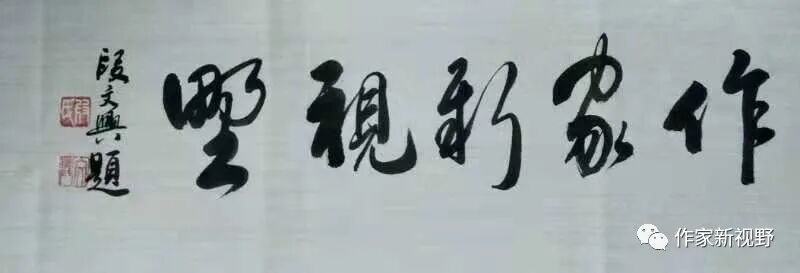 作家新視野
段文興題
作家新视野